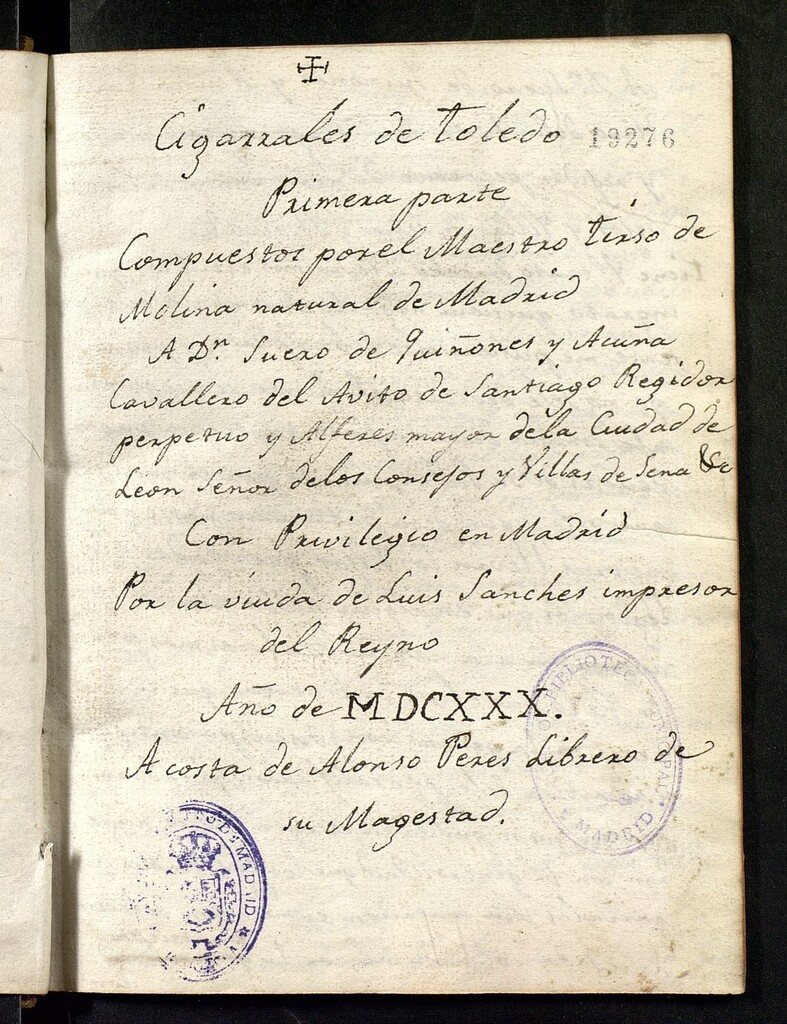 Cigarrales de Toledo 19276
Primera parte
Compuestos por el Maestro Tirso de
Molina natural de Madrid
A Dn. Suero de Quiñones y Acuña
Cavallero del Avito de Santiago Regidor
perpetuo y Alferes mayor dela Ciudad de
Leon Señor delos Consejos y Villas de Sena &c
Con Privilegio en Madrid
Por la viuda de Luis Sanches impresor
del Reyno
Año de MDCXXX.
A costa de Alonso Peres Librero de
su Magestad.
BIBLIOTECA
MADRID
DE MADRID